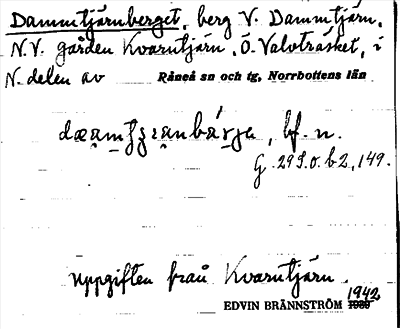 Dammtjärnberget, berg V. Dammtjärn,
N.V. gården Kvarntjärn, Ö. Valvträsket, i
N. delen av Råneå sn och tg, Norrbottens län
bf. n.
G. 29 S. o. b 2, 149.
uppgiften från Kvarntjärn.
1942
EDVIN BRÄNNSTRÖM 1939